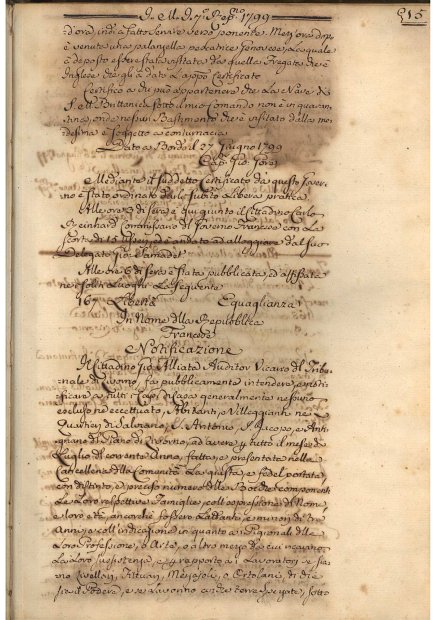 A. M. D. 7.º Rep.no 1799 515
d'ora, indi à fatto Levare verso ponente. Mezz'ora dopo
è venuta una palanzella pescatrice Genovese, La quale
à deposto essere stata visitata da quella Fregata che è
Inglese che gli à dato L'apposto Certificato
Certifico a chi può appartenere che La Nave di
S. M. Brittanica sotto il mio Comando non è in quaran-
tina, onde nesun Bastimento che è visitato dalla me-
desima è soggetto a contumacia
Dato a Bordo il 27 Giugno 1799
Cap. Gio. Gore
Mediante il suddetto Certificato da questo Gover-
no è stato ordinato darle subito Libera pratica
Alle ore di sera è qui giunto il Cittadino Carlo
Reinhard Commissario del Governo Francese con La
scorta di 15 ed è andato ad alloggiare dal suo
Delegato Gio. Jamadet
Alle ore di sera è stata pubblicata, ed affissata
ne soliti Luoghi La seguente
167 Libertà Equaglianza
In Nome della Repubblica
Francese
Notificazione
Il Cittadino Gio. Alliata Auditor Vicario del Tribu-
nale di Livorno, fa pubblicamente intendere, e noti-
ficare a tutti i Capi di Casa generalmente nessuno
escluso, ne eccettuato, Abitanti, e Villeggianti ne
Quartieri di Salviano, S. Antonio, S. Jacopo, e Anti-
gnano di Piano di Livorno, ad avere p tutto il mese di
Luglio del corrente Anno, fatta, e presentata nella
Cancelleria della Comunità La giusta, e fedel portata,
con distinto, e preciso numero delle Bocche componenti
Le Loro respettive Famiglie, coll'espressione del Nome,
a loro età, ancorchè fossero Lattanti, e minori di tre
Anni, e coll'indicazione in quanto ai Pigionali delle
Loro Professione, o Arte, o altro mezzo da cui ricavano
La Loro sussistenza, e p rapporto ai Lavoratori se sia-
no Livellari, Fittuari, Mezzajoli, o Ortolani, di chi
sia il Podere, e se lavorino anche terre spezzate, sotto